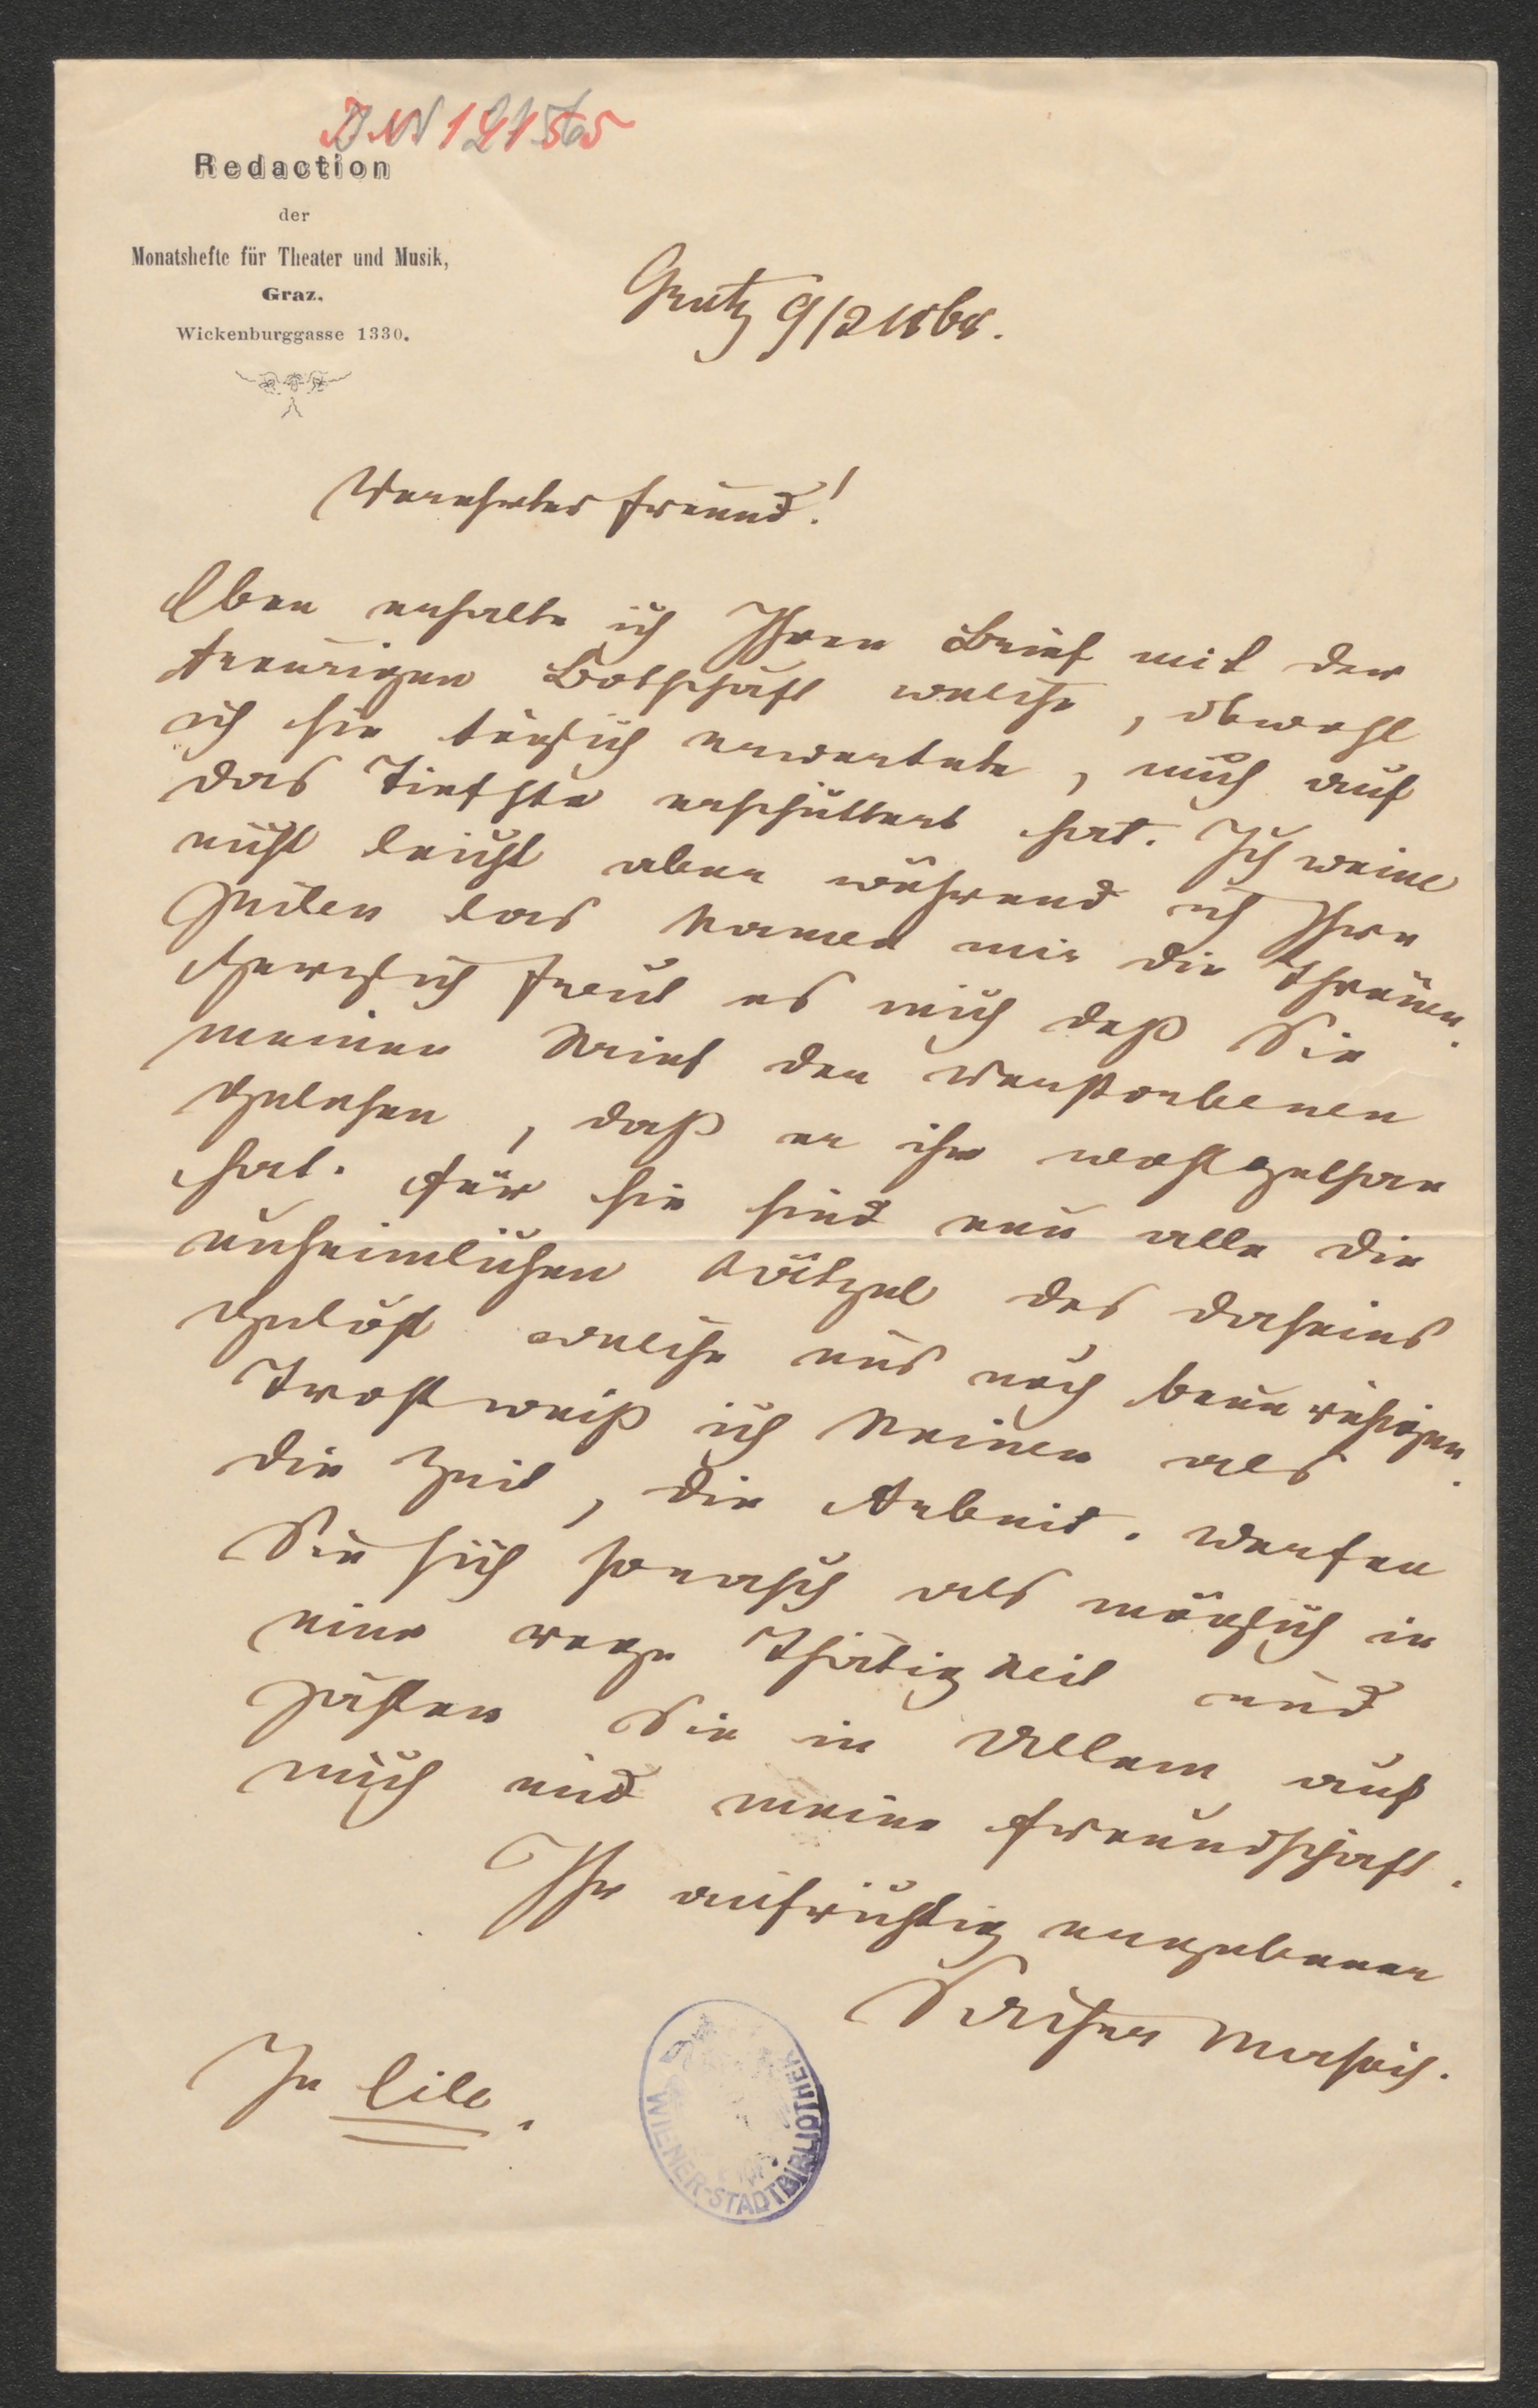 I.N. 121565
Redaction
der
Monatshefte für Theater und Musik,
Graz.
Wickenburggasse 1330.
Gratz 9/2 1868.
Verehrter Freund!
Eben erhalte ich Ihren Brief mit der
traurigen Botschaft welche, obwohl
ich sie täglich erwartete, mich auf
das Tiefste erschüttert hat. Ich weine
nicht leicht aber während ich Ihre
Zeilen las kamen mir die Thränen.
Herzlich freut es mich daß Sie
meinen Brief der Verstorbenen
gelesen, daß er ihr wohlgethan
hat. Für sie sind nun alle die
unheimlichen Rätzel des Daseins
gelöst welche uns noch beunruhigen.
Trost weiß ich keinen als
die Zeit, die Arbeit. Werfen
Sie sich sorasch als möglich in
eine rege Thätigkeit und
zählen Sie in Allem auf
mich und meine Freundschaft.
Ihr aufrichtig ergebener
Sacher Masoch.
In Eile.
WIENER STADTBIBLIOTHEK